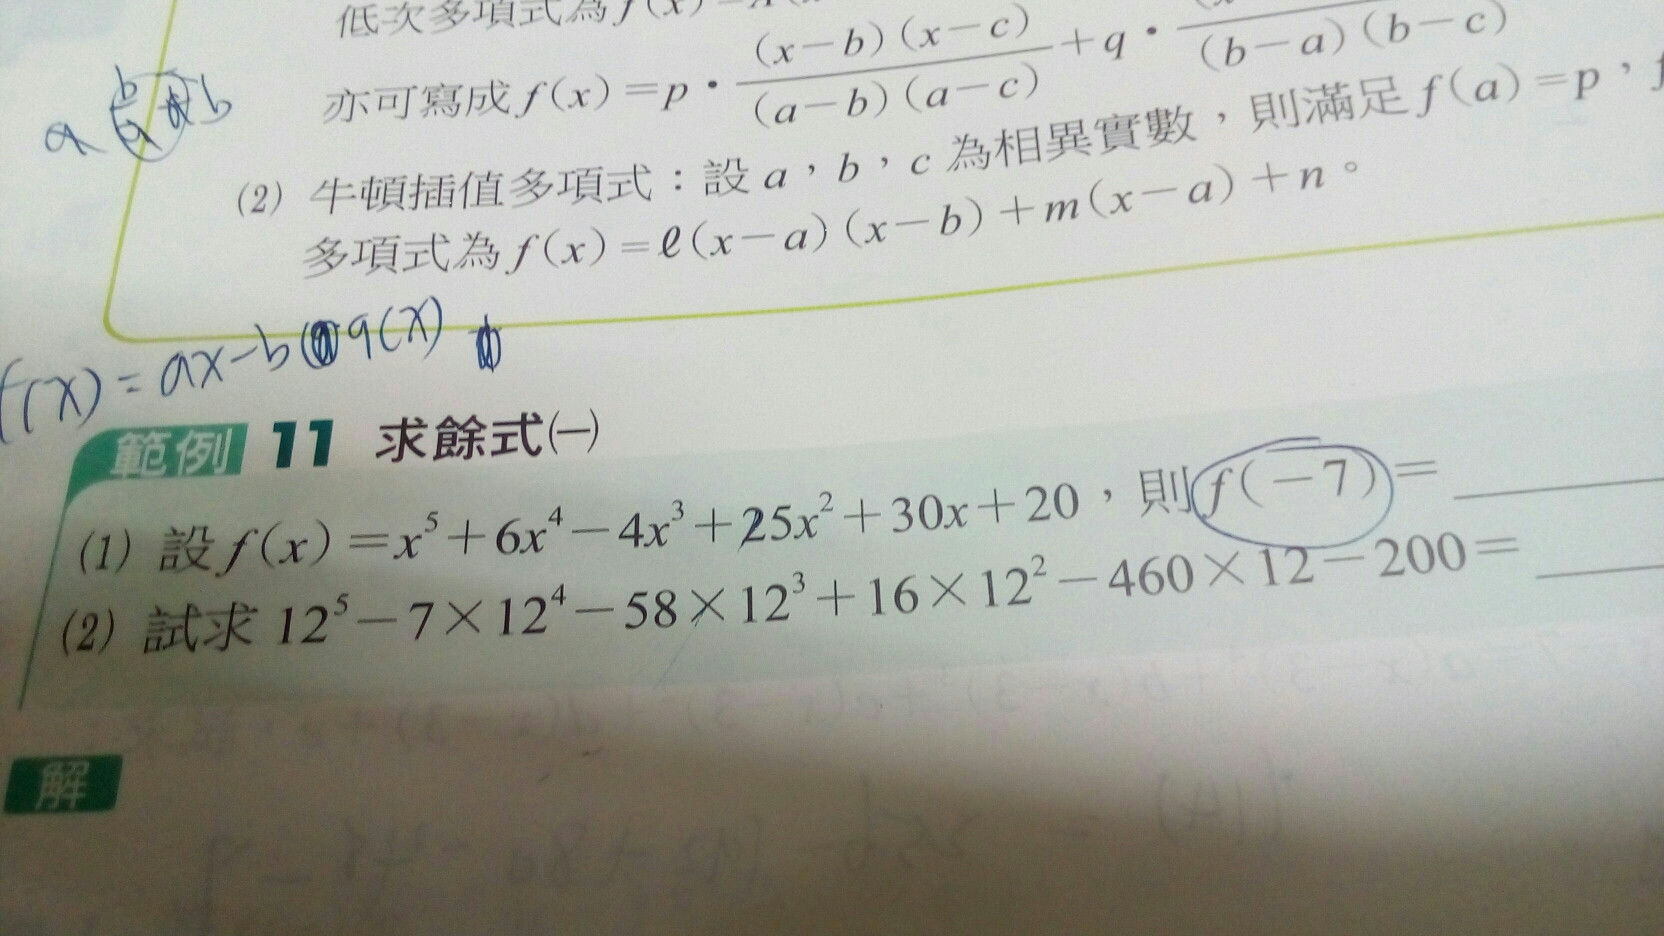 低次多項式為 f(x)
亦可寫成 f(x)=p·(x-b)(x-c)/(a-b)(a-c)+q·/(b-a)(b-c)
(2) 牛頓插值多項式：設 a，b，c 為相異實數，則滿足 f(a)=p，f
多項式為 f(x)=ℓ(x-a)(x-b)+m(x-a)+n。
f(x)=ax-b q(x)
範例 11 求餘式(一)
(1) 設 f(x)=x⁵+6x⁴-4x³+25x²+30x+20，則 f(-7)=
(2) 試求 12⁵-7×12⁴-58×12³+16×12²-460×12-200=
解